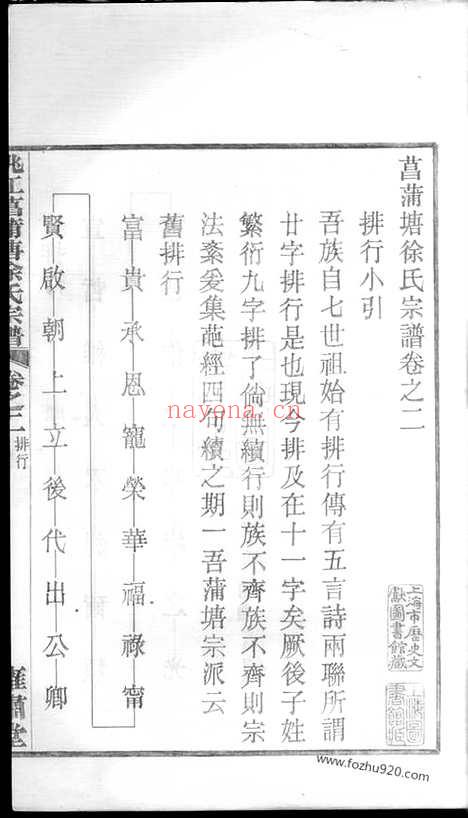 菖蒲塘徐氏宗譜卷之二
排行小引
吾族自七世祖始有排行傳有五言詩兩聯所謂
廿字排行是也現今排及在十一字矣厥後子姓
繁衍九字排了倘無續行則族不齊族不齊則宗
法紊爰集葩經四句續之期一吾蒲塘宗派云
舊排行
富 貴 承 恩 寵 榮 華 福 祿 甯
賢 啟 朝 上 立 後 代 出 公 卿
姚江菖蒲塘徐氏宗譜 卷之二 排行
上海市歷史文
獻圖書館藏
nayona.cn
www.fozhu920.com